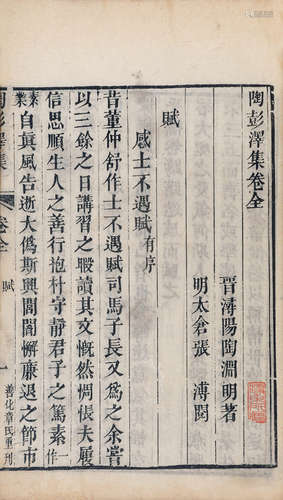 陶彭澤集卷全
晉潯陽陶淵明著
明太倉張溥閱
賦
感士不遇賦有序
昔董仲舒作士不遇賦司馬子長又爲之余嘗
以三餘之日講習之暇讀其文慨然惆悵夫履
信思順生人之善行抱朴守靜君子之篤素一作
素業自眞風告逝大僞斯興閭閻懈廉退之節市
陶彭澤集
卷全
賦
一
善化章氏重刊